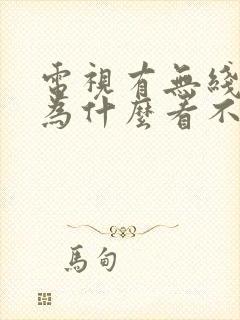 電視有無綫
為什麼看不
馬甸